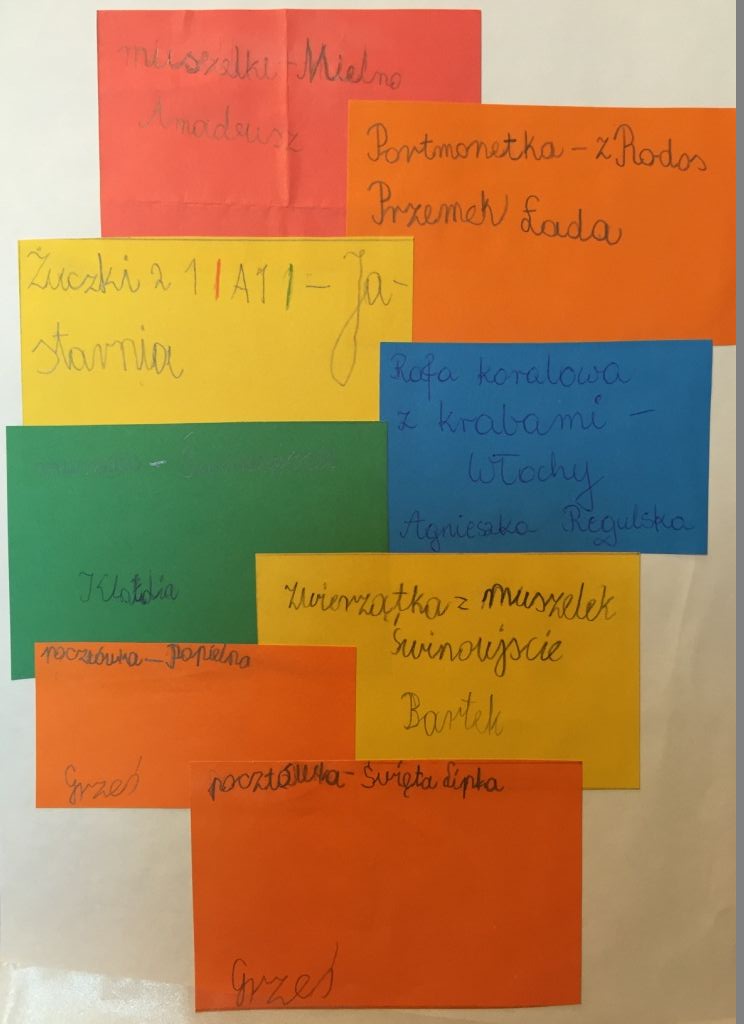 muszelki - Mielno
Amadeusz
Portmonetka - z Rodos
Przemek Łada
Żuczki 2 1 | A1 | - Ja-
starnia
Rafa koralowa
z krabami -
Włochy
Agnieszka Regulska
Klaudia
Zwierzątka z muszelek
Świnoujście
Bartek
pocztówka - Popielno
Grześ
pocztówka - Święta Lipka
Grześ